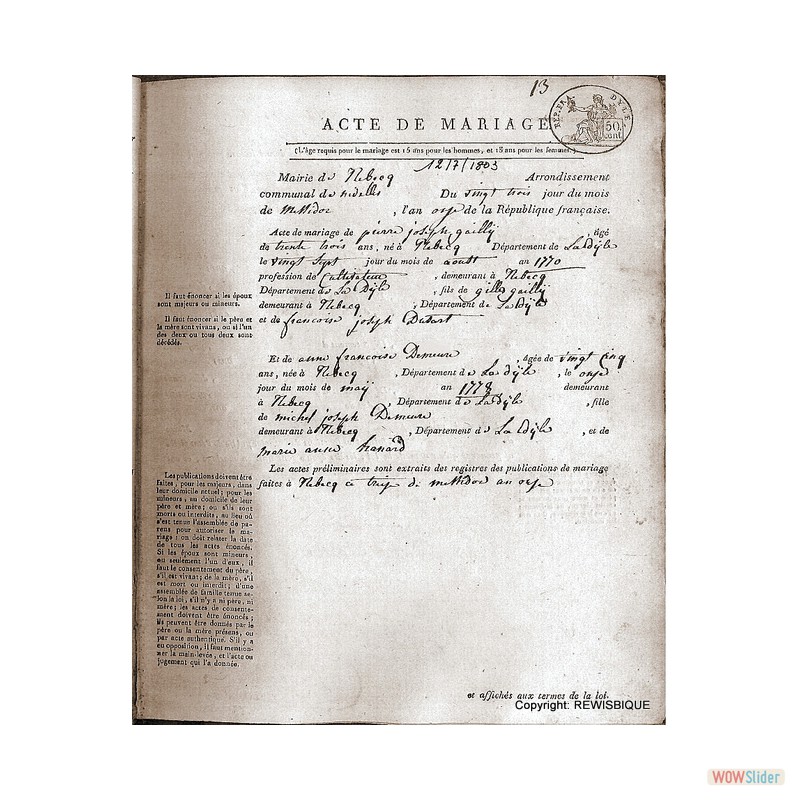 13
REP. FRA. DYLE.
50. cent.
ACTE DE MARIAGE
(L'âge requis pour le mariage est 15 ans pour les hommes, et 15 ans pour les femmes.)
12/7/1803
Mairie de Rebecq Arrondissement
communal de nivelles Du vingt trois jour du mois
de Messidor, l'an onze de la République française.
Acte de mariage de pierre joseph gailly, âgé
de trente trois ans, né à Rebecq Département de La Dyle
le vingt sept jour du mois de aoutt an 1770
profession de Cultivateur, demeurant à Rebecq
Département de La Dyle, fils de gilles gailly
demeurant à Rebecq, Département de La Dyle
et de francoise joseph Dutart
Il faut énoncer si les époux
sont majeurs ou mineurs.
Il faut énoncer si le père et
la mère sont vivans, ou si l'un
des deux ou tous deux sont
décédés.
Et de anne francoise Demeure, âgée de vingt cinq
ans, née à Rebecq, Département de La dyle, le onze
jour du mois de maij an 1778 demeurant
à Rebecq, Département de La Dyle, fille
de michel joseph Demeure
demeurant à Rebecq, Département de La Dyle, et de
marie anne hanard
Les actes préliminaires sont extraits des registres des publications de mariage
faites à Rebecq ce treize de messidor an onze
Les publications doivent être
faites, pour les majeurs, dans
leur domicile actuel; pour les
mineurs, au domicile de leur
père et mère; ou s'ils sont
morts ou interdits, au lieu où
s'est tenue l'assemblée de pa-
rens pour autoriser le ma-
riage; on doit relater la date
de tous les actes énoncés.
Si les époux sont mineurs,
ou seulement l'un d'eux, il
faut le consentement du père,
s'il est vivant; de la mère, s'il
est mort ou interdit; d'une
assemblée de famille tenue se-
lon la loi, s'il n'y a ni père, ni
mère; les actes de consente-
ment doivent être énoncés;
ils peuvent être donnés par le
père ou la mère présens, ou
par acte authentique. S'il y a
eu opposition, il faut mention-
ner la main-levée, et l'acte ou
jugement qui l'a donnée.
et affichés aux termes de la loi.
Copyright: REWISBIQUE
WOWSlider